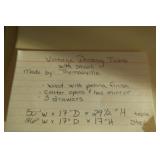 Vintage Dressing Table
with stool
Made by Thomasville
- wood with patina finish
- center opens & has mirror
- drawers
50" W x 17" D x 29½" H table
17" D x 17" H